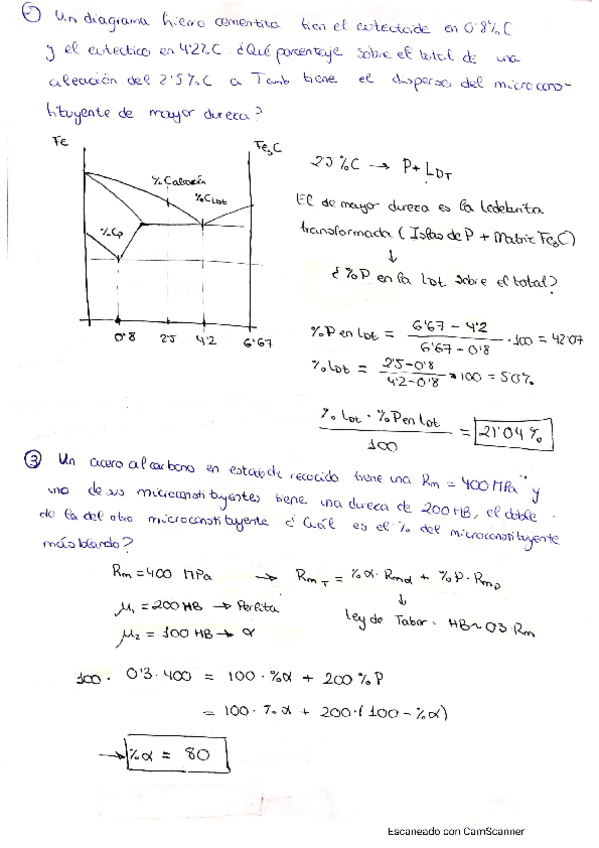 ② Un diagrama hierro cementita tien el eutectoide en 0'8%C
y el eutectico en 4'2%C ¿Qué porcentaje sobre el total de una
aleación del 2'5%C a Tamb tiene el disperso del microcons-
tituyente de mayor dureza?
Fe
Fe3C
%Caleación
%CLDt
%CP
0'8 2'5 4'2 6'67
2'5 %C → P + LDT
El de mayor dureza es la ledeburita
transformada (Islas de P + Matriz Fe3C)
↓
¿%P en la Ldt sobre el total?
%P en Ldt = 6'67 - 4'2 / 6'67 - 0'8 · 100 = 42'07
% Ldt = 2'5 - 0'8 / 4'2 - 0'8 · 100 = 50%
% Ldt · %P en Ldt / 100 = 21'04 %
③ Un acero al carbono en estado de recocido tiene una Rm = 400 MPa y
uno de sus microconstituyentes tiene una dureza de 200 HB, el doble
de la del otro microconstituyente ¿Cuál es el % del microconstituyente
más blando?
Rm = 400 MPa → RmT = %α · Rmα + %P · RmP
↓
μ1 = 200 HB → Perlita
Ley de Tabor. HB ~ 0'3 · Rm
μ2 = 100 HB → α
100 · 0'3 · 400 = 100 · %α + 200 %P
= 100 · %α + 200 · (100 - %α)
→ %α = 80
Escaneado con CamScanner